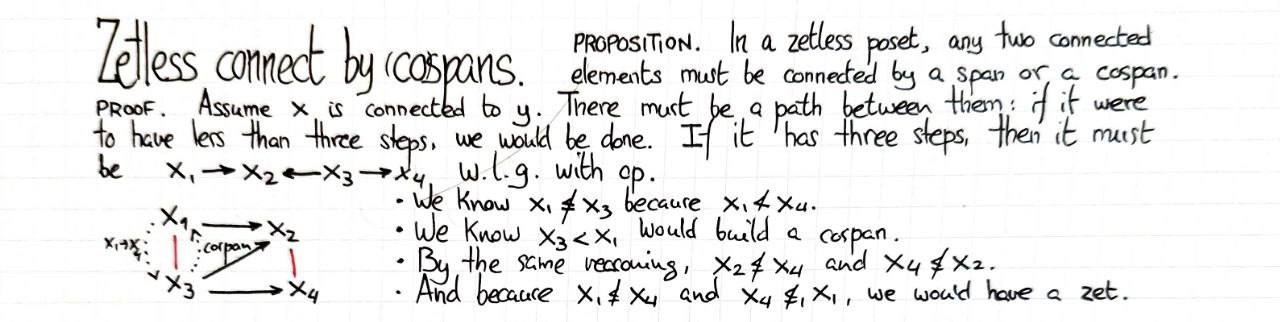 Zetless connect by (co)spans.
PROPOSITION. In a zetless poset, any two connected
elements must be connected by a span or a cospan.
PROOF. Assume x is connected to y. There must be a path between them: if it were
to have less than three steps, we would be done. If it has three steps, then it must
be x₁ → x₂ ← x₃ → x₄ w.l.g. with op.
• We know x₁ ≮ x₃ because x₁ ≮ x₄.
• We know x₃ < x₁ would build a cospan.
• By the same reasoning, x₂ ≮ x₄ and x₄ ≮ x₂.
• And because x₁ ≮ x₄ and x₄ ≮ x₁, we would have a zet.
x₁ → x₂
x₁→x₄ cospan
x₃ → x₄